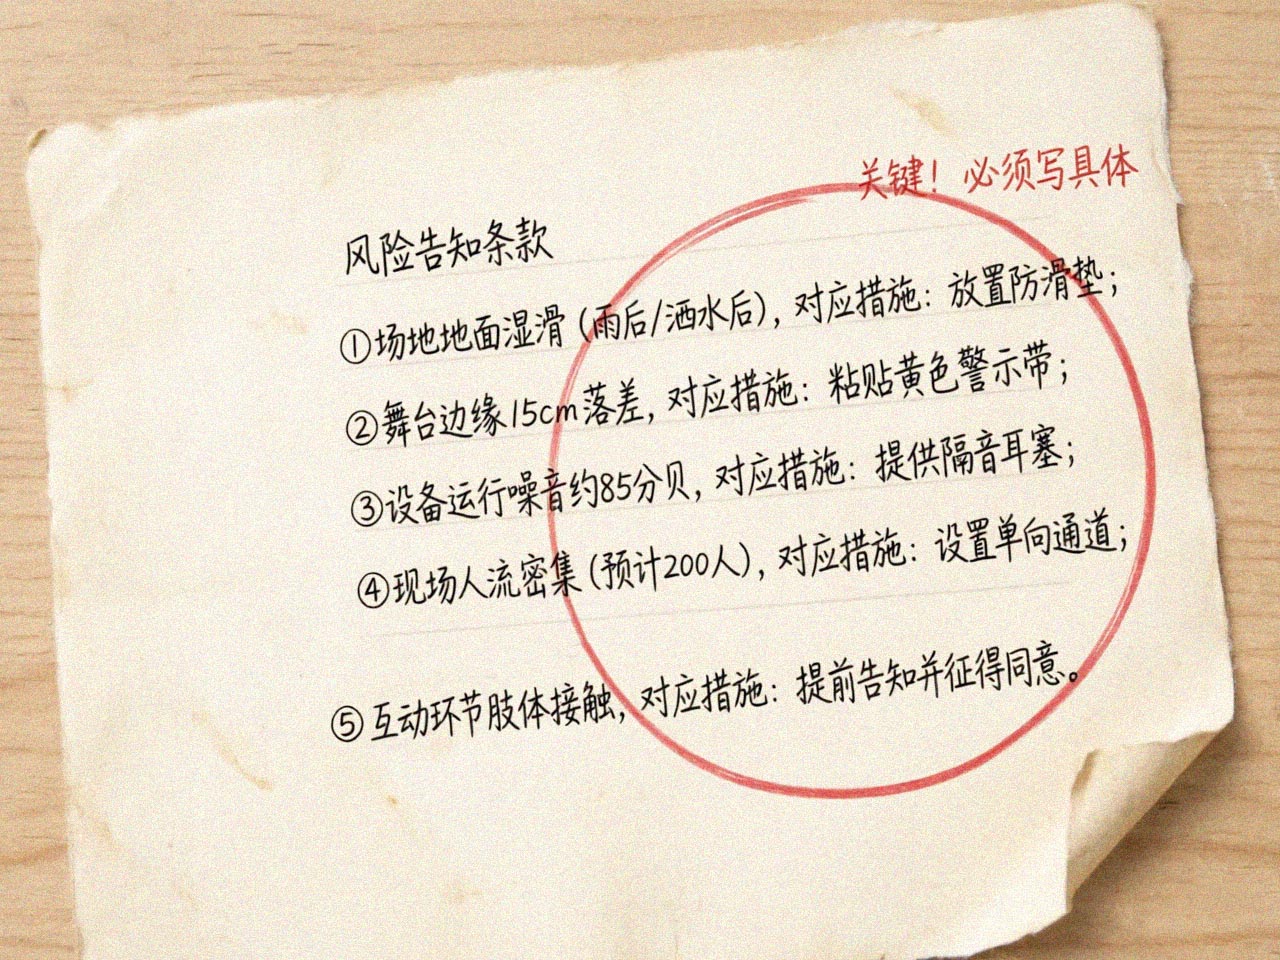 关键！必须写具体
风险告知条款
①场地地面湿滑（雨后/洒水后），对应措施：放置防滑垫；
②舞台边缘15cm落差，对应措施：粘贴黄色警示带；
③设备运行噪音约85分贝，对应措施：提供隔音耳塞；
④现场人流密集（预计200人），对应措施：设置单向通道；
⑤互动环节肢体接触，对应措施：提前告知并征得同意。